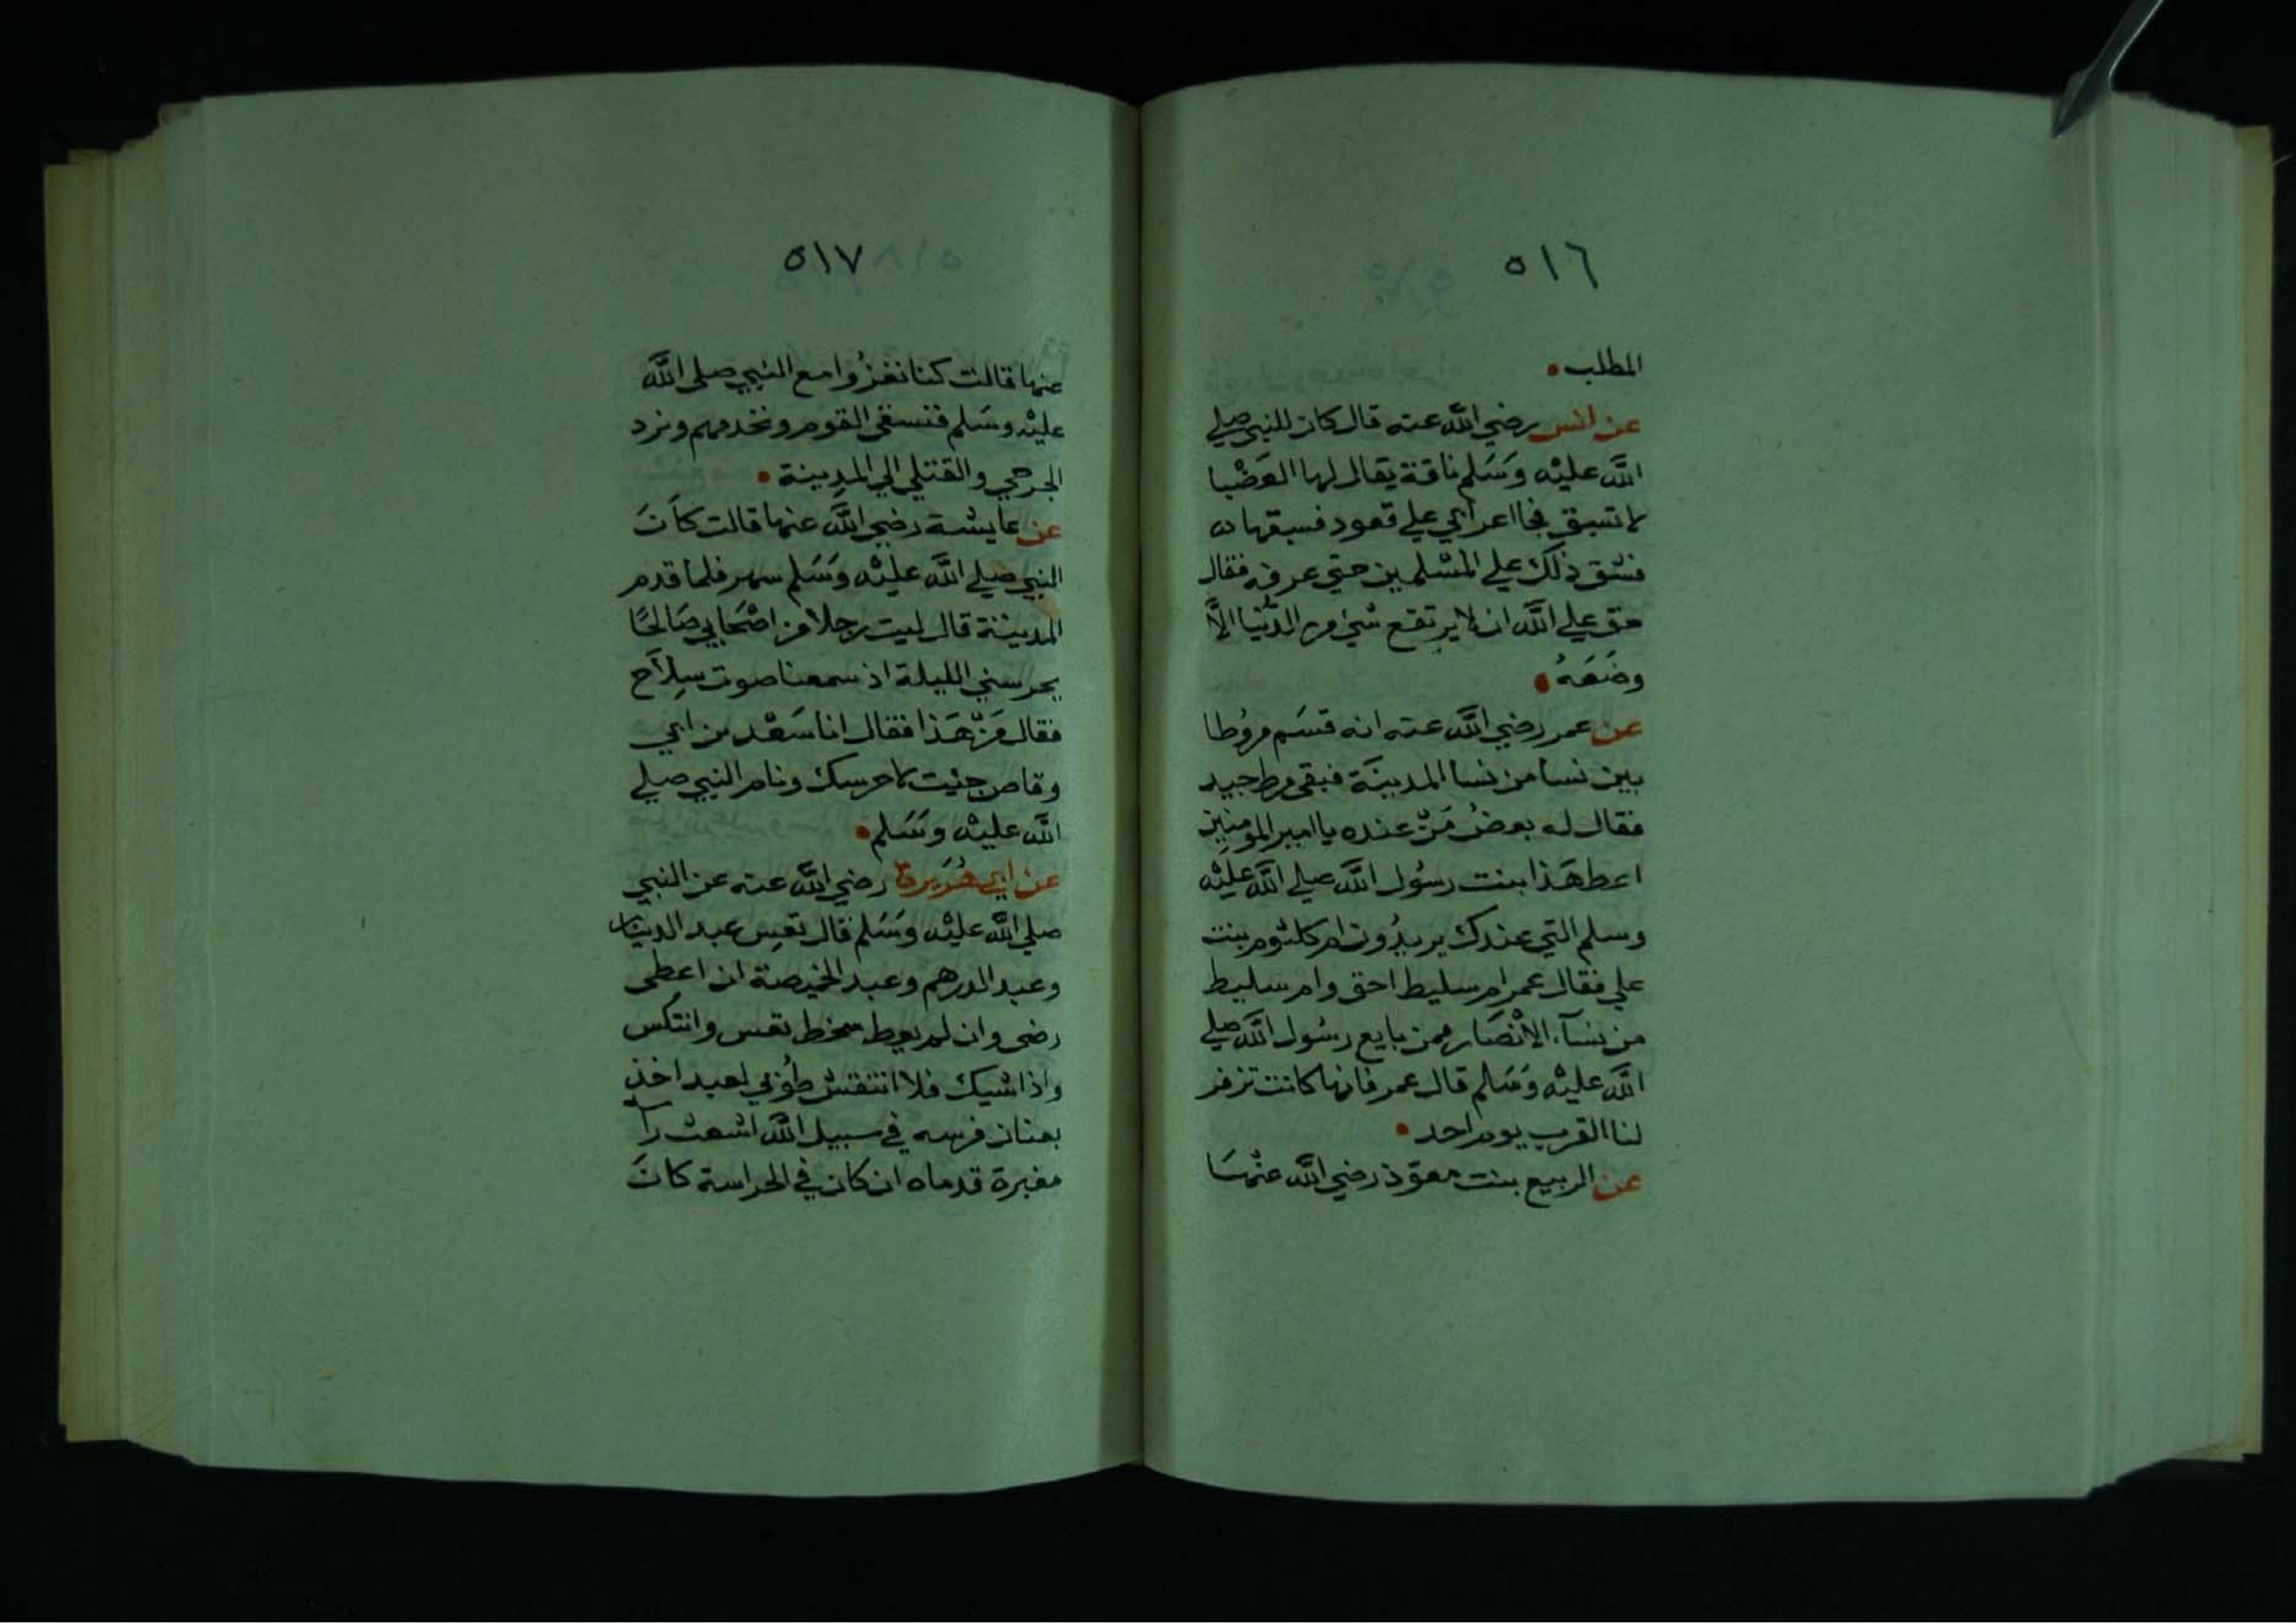 ٥١٦
المطلب
عن انس رضي الله عنه قال كان للنبي صلي
الله عليه وسلم ناقة يقال لها العضبا
لا تسبق فجا اعرابي علي قعود فسبقها
فشق ذلك علي المسلمين حتي عرفه فقال
حق علي الله ان لا يرتفع شي من الدنيا الا
وضعه
عن عمر رضي الله عنه انه قسم مروطا
بين نسا من نسا المدينة فبقي مرط جيد
فقال له بعض من عنده يا امير المومنين
اعط هذا بنت رسول الله صلي الله عليه
وسلم التي عندك يريدون ام كلثوم بنت
علي فقال عمر ام سليط احق وام سليط
من نسآء الانصار ممن بايع رسول الله صلي
الله عليه وسلم قال عمر فانها كانت تزفر
لنا القرب يوم احد
عن الربيع بنت معوذ رضي الله عنهما
٥١٧
عنها قالت كنا نغزوا مع النبي صلى الله
عليه وسلم فنسقي القوم ونخدمهم ونرد
الجرحي والقتلي الي المدينة
عن عايشة رضي الله عنها قالت كان
النبي صلي الله عليه وسلم سهر فلما قدم
المدينة قال ليت رجلا من اصحابي صالحا
يحرسني الليلة اذ سمعنا صوت سلاح
فقال من هذا فقال انا سعد بن ابي
وقاص جئت لاحرسك ونام النبي صلي
الله عليه وسلم
عن ابي هريرة رضي الله عنه عن النبي
صلي الله عليه وسلم قال تعس عبد الدينار
وعبد الدرهم وعبد الخميصة ان اعطى
رضى وان لم يعط سخط تعس وانتكس
واذا شيك فلا انتقش طوبي لعبد اخذ
بعنان فرسه في سبيل الله اشعث را
مغبرة قدماه ان كان في الحراسة كان